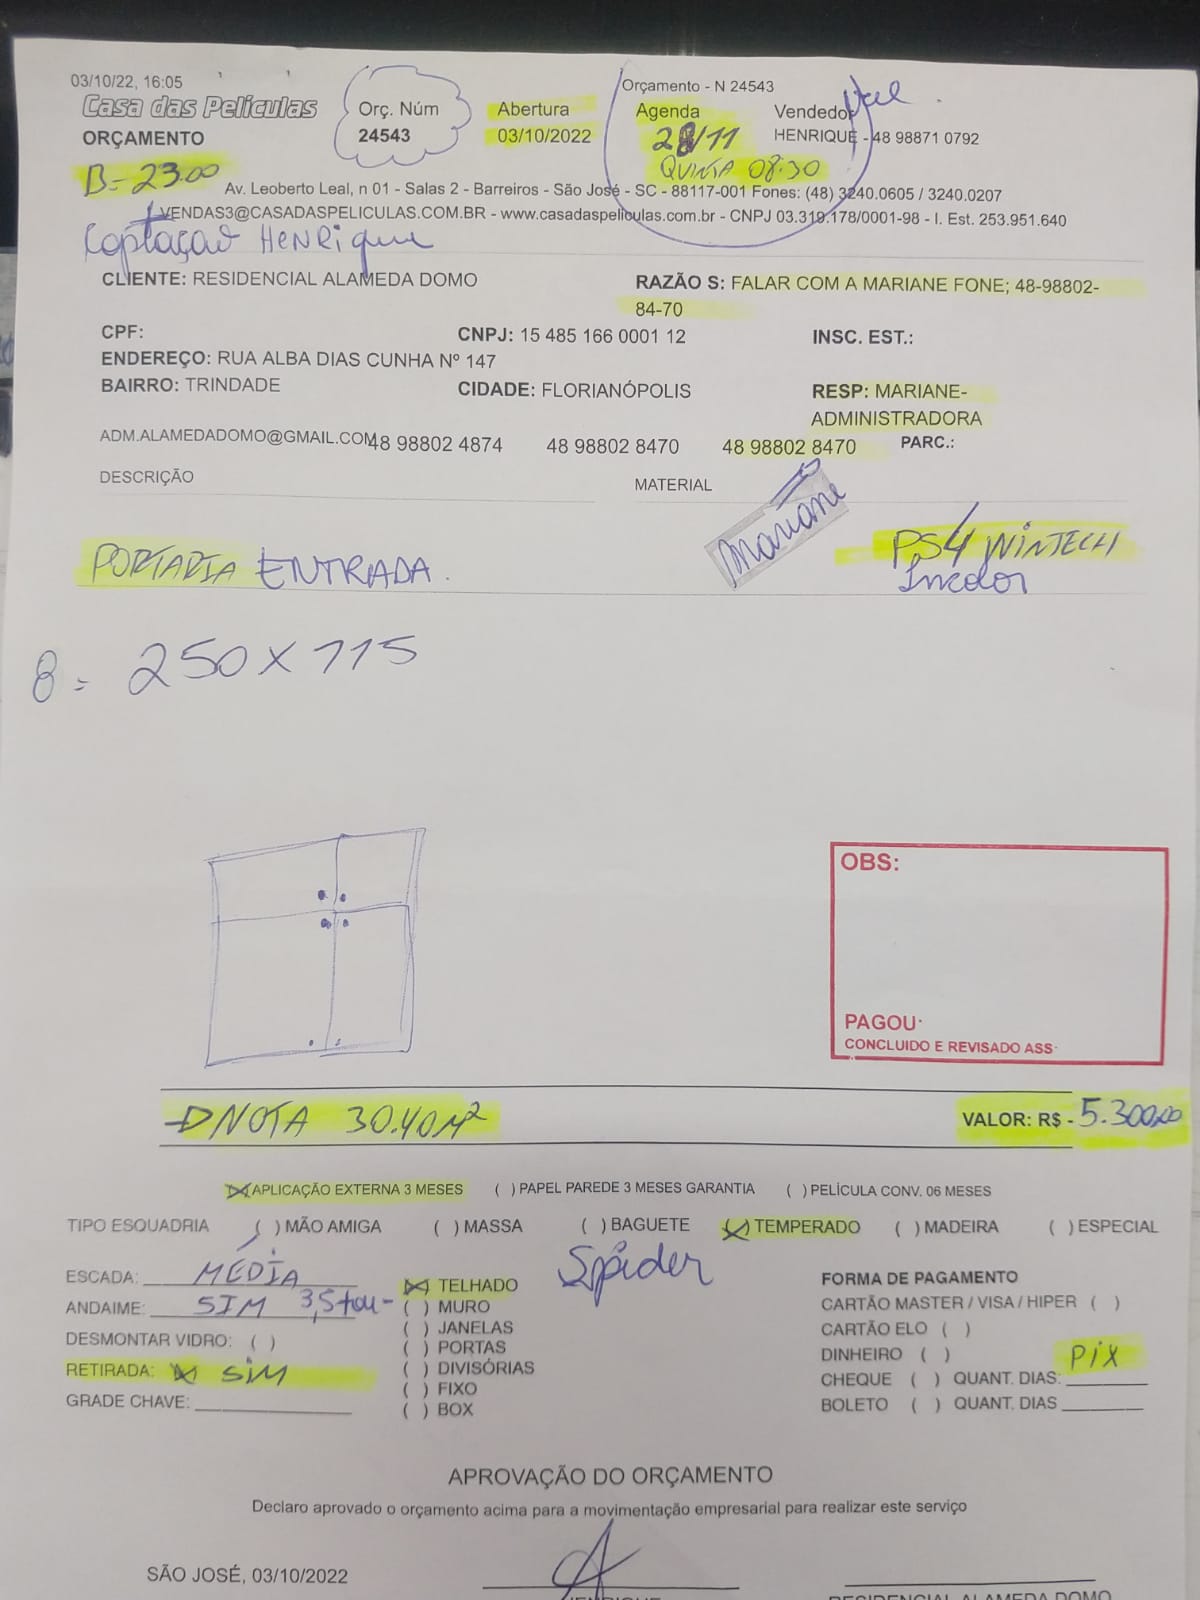 03/10/22, 16:05
Orçamento - N 24543
Casa das Películas
ORÇAMENTO
Orç. Núm
24543
Abertura
03/10/2022
Agenda
28/11
QUINTA 08:30
Vendedor
HENRIQUE - 48 98871 0792
B- 23.00
Av. Leoberto Leal, n 01 - Salas 2 - Barreiros - São José - SC - 88117-001 Fones: (48) 3240.0605 / 3240.0207
VENDAS3@CASADASPELICULAS.COM.BR - www.casadaspeliculas.com.br - CNPJ 03.319.178/0001-98 - I. Est. 253.951.640
Coptaçao HENRique
CLIENTE: RESIDENCIAL ALAMEDA DOMO
RAZÃO S: FALAR COM A MARIANE FONE; 48-98802-
84-70
CPF:
CNPJ: 15 485 166 0001 12
INSC. EST.:
ENDEREÇO: RUA ALBA DIAS CUNHA Nº 147
BAIRRO: TRINDADE
CIDADE: FLORIANÓPOLIS
RESP: MARIANE-
ADMINISTRADORA
ADM.ALAMEDADOMO@GMAIL.COM
48 98802 4874
48 98802 8470
48 98802 8470
PARC.:
DESCRIÇÃO
MATERIAL
Mariane
PORTARIA ENTRADA.
PS4 WINTECH
Incolor
8 = 250 X 115
OBS:
PAGOU:
CONCLUIDO E REVISADO ASS:
NOTA 30.40M²
VALOR: R$ - 5.300,00
(X) APLICAÇÃO EXTERNA 3 MESES ( ) PAPEL PAREDE 3 MESES GARANTIA ( ) PELÍCULA CONV. 06 MESES
TIPO ESQUADRIA ( ) MÃO AMIGA ( ) MASSA ( ) BAGUETE (X) TEMPERADO ( ) MADEIRA ( ) ESPECIAL
Spider
ESCADA: MÉDIA
ANDAIME: SIM
DESMONTAR VIDRO: ( )
RETIRADA: X SIM
GRADE CHAVE:
(X) TELHADO
( ) MURO
( ) JANELAS
( ) PORTAS
( ) DIVISÓRIAS
( ) FIXO
( ) BOX
FORMA DE PAGAMENTO
CARTÃO MASTER / VISA / HIPER ( )
CARTÃO ELO ( )
DINHEIRO ( )
PIX
CHEQUE ( ) QUANT. DIAS:
BOLETO ( ) QUANT. DIAS
APROVAÇÃO DO ORÇAMENTO
Declaro aprovado o orçamento acima para a movimentação empresarial para realizar este serviço
SÃO JOSÉ, 03/10/2022
HENRIQUE
RESIDENCIAL ALAMEDA DOMO